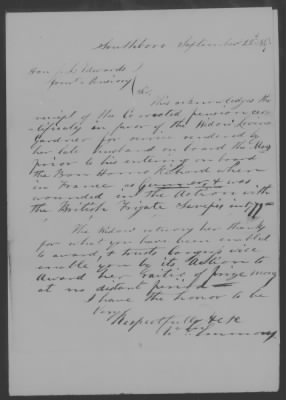 Southboro September 25th
Hon J. L. Edwards
Sir
This acknowledges the
receipt of the Corrected pension cer-
tificate in favor of the Widow
Gardner for service rendered by
her late husband on board the
prior to his entering on board
the Bon Homme Richard when
in France as Gunner & was
wounded in the Action with
the British Frigate Serapis in 79
The Widow returns her thanks
for what you have been enabled
to award, & trusts Congress will
enable you by its Action to
Award her Ratio of prize mony
at no distant period
I have the honor to be
Very
Respectfully &c